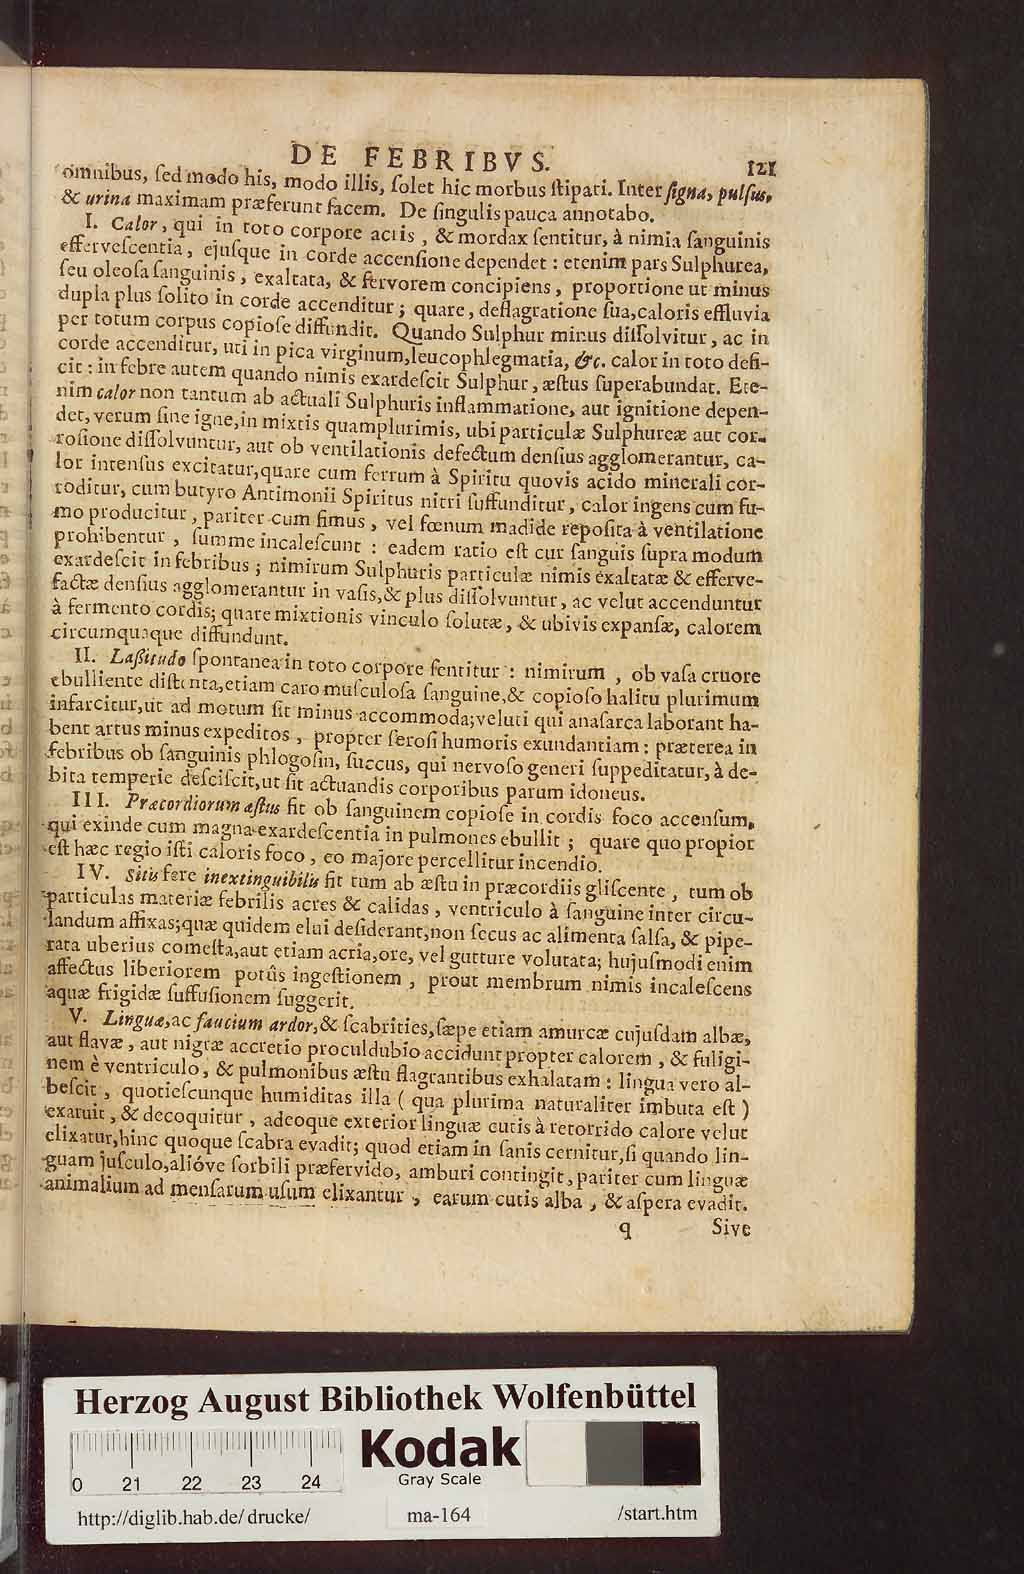 DE FEBRIBVS. 121
omnibus, ſed modo his, modo illis, ſolet hic morbus ſtipari. Inter ſigna, pulſus,
& urina maximam præferunt facem. De ſingulis pauca annotabo.
I. Calor, qui in toto corpore acris, & mordax ſentitur, à nimia ſanguinis
efferveſcentia, ejuſque in corde accenſione dependet: etenim pars Sulphurea,
ſeu oleoſa ſanguinis, exaltata, & fervorem concipiens, proportione ut minus
dupla plus ſolito in corde accenditur; quare, deflagratione ſua, caloris effluvia
per totum corpus copioſe diffundit. Quando Sulphur minus diſſolvitur, ac in
corde accenditur, uti in pica virginum, leucophlegmatia, &c. calor in toto defi-
cit: in febre autem quando nimis exardeſcit Sulphur, æſtus ſuperabundat. Ete-
nim calor non tantum ab actuali Sulphuris inflammatione, aut ignitione depen-
det, verum ſine igne, in mixtis quamplurimis, ubi particulæ Sulphureæ aut cor-
roſione diſſolvuntur, aut ob ventilationis defectum denſius agglomerantur, ca-
lor intenſus excitatur, quare cum ferrum à Spiritu quovis acido minerali cor-
roditur, cum butyro Antimonii Spiritus nitri ſuffunditur, calor ingens cum fu-
mo producitur, pariter cum fimus, vel fœnum madide repoſita à ventilatione
prohibentur, ſumme incaleſcunt: eadem ratio eſt cur ſanguis ſupra modum
exardeſcit in febribus; nimirum Sulphuris particulæ nimis exaltatæ & efferve-
factæ denſius agglomerantur in vaſis, & plus diſſolvuntur, ac velut accenduntur
à fermento cordis; quare mixtionis vinculo ſolutæ, & ubivis expanſæ, calorem
circumquaque diffundunt.
II. Laſſitudo ſpontanea in toto corpore ſentitur: nimirum, ob vaſa cruore
ebulliente diſtenta, etiam caro muſculoſa ſanguine, & copioſo halitu plurimum
infarcitur, ut ad motum ſit minus accommoda; veluti qui anaſarca laborant ha-
bent artus minus expeditos, propter ſeroſi humoris exundantiam: præterea in
febribus ob ſanguinis phlogoſin, ſuccus, qui nervoſo generi ſuppeditatur, à de-
bita temperie deſciſcit, ut ſit actuandis corporibus parum idoneus.
III. Præcordiorum æſtus fit ob ſanguinem copioſe in cordis foco accenſum,
qui exinde cum magna exardeſcentia in pulmones ebullit; quare quo propior
eſt hæc regio iſti caloris foco, eo majore percellitur incendio.
IV. Sitis fere inextinguibilis fit tum ab æſtu in præcordiis gliſcente, tum ob
particulas materiæ febrilis acres & calidas, ventriculo à ſanguine inter circu-
landum affixas; quæ quidem elui deſiderant, non ſecus ac alimenta ſalſa, & pipe-
rata uberius comeſta, aut etiam acria, ore, vel gutture volutata; hujuſmodi enim
affectus liberiorem potûs ingeſtionem, prout membrum nimis incaleſcens
aquæ frigidæ ſuffuſionem ſuggerit.
V. Linguæ, ac faucium ardor, & ſcabrities, ſæpe etiam amurcæ cujuſdam albæ,
aut flavæ, aut nigræ accretio proculdubio accidunt propter calorem, & fuligi-
nem è ventriculo, & pulmonibus æſtu flagrantibus exhalatam: lingua vero al-
beſcit, quotieſcunque humiditas illa (qua plurima naturaliter imbuta eſt)
exaruit, & decoquitur, adeoque exterior linguæ cutis à retorrido calore velut
elixatur, hinc quoque ſcabra evadit; quod etiam in ſanis cernitur, ſi quando lin-
guam juſculo, alióve ſorbili præfervido, amburi contingit, pariter cum linguæ
animalium ad menſarum uſum elixantur, earum cutis alba, & aſpera evadit.
q Sive
Herzog August Bibliothek Wolfenbüttel
Kodak
Gray Scale
0 21 22 23 24
http://diglib.hab.de/drucke/ ma-164 /start.htm